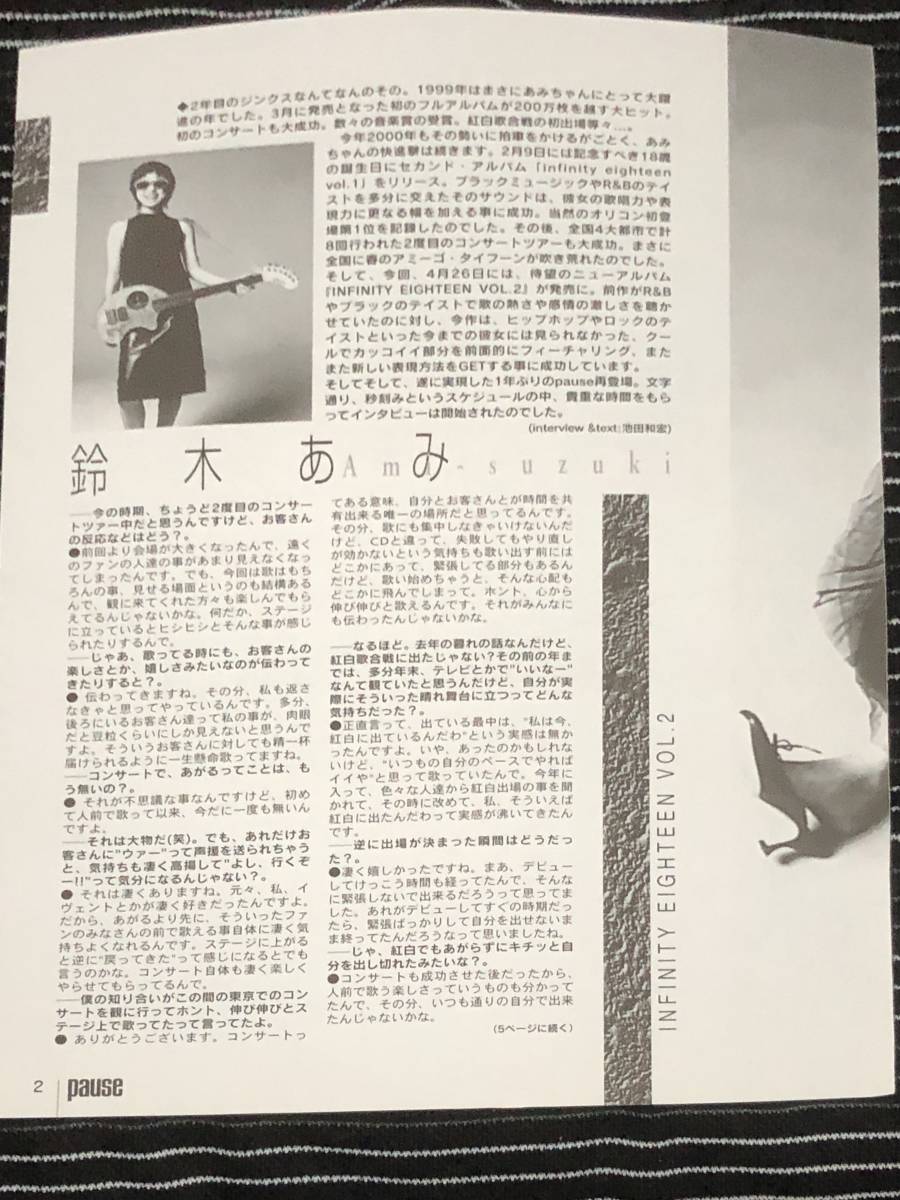 ◆2年目のジンクスなんてなんのその。1999年はまさにあみちゃんにとって大躍
進の年でした。3月に発売となった初のフルアルバムが200万枚を越す大ヒット。
初のコンサートも大成功。数々の音楽賞の受賞。紅白歌合戦の初出場等々…。
今年2000年もその勢いに拍車をかけるがごとく、あみ
ちゃんの快進撃は続きます。2月9日には記念すべき18歳
の誕生日にセカンド・アルバム「infinity eighteen
vol.1」をリリース。ブラックミュージックやR&Bのテイ
ストを多分に交えたそのサウンドは、彼女の歌唱力や表
現力に更なる幅を加える事に成功。当然のオリコン初登
場第1位を記録したのでした。その後、全国4大都市で計
8回行われた2度目のコンサートツアーも大成功。まさに
全国に春のアミーゴ・タイフーンが吹き荒れたのでした。
そして、今回、4月26日には、待望のニューアルバム
『INFINITY EIGHTEEN VOL.2』が発売に。前作がR&B
やブラックのテイストで歌の熱さや感情の激しさを聴か
せていたのに対し、今作は、ヒップホップやロックのテ
イストといった今までの彼女には見られなかった、クー
ルでカッコイイ部分を前面的にフィーチャリング、また
また新しい表現方法をGETする事に成功しています。
そしてそして、遂に実現した1年ぶりのpause再登場。文字
通り、秒刻みというスケジュールの中、貴重な時間をもら
ってインタビューは開始されたのでした。
(interview &text:池田和宏)
鈴木あみ
Ami-suzuki
――今の時期、ちょうど2度目のコンサー
トツァー中だと思うんですけど、お客さん
の反応などはどう?。
●前回より会場が大きくなったんで、遠く
のファンの人達の事があまり見えなくなっ
てしまったんです。でも、今回は歌はもち
ろんの事、見せる場面というのも結構ある
んで、観に来てくれた方々も楽しんでもら
えてるんじゃないかな。何だか、ステージ
に立っているとヒシヒシとそんな事が感じ
られたりするんで。
――じゃあ、歌ってる時にも、お客さんの
楽しさとか、嬉しさみたいなのが伝わって
きたりすると?。
● 伝わってきますね。その分、私も返さ
なきゃと思ってやっているんです。多分、
後ろにいるお客さん達って私の事が、肉眼
だと豆粒くらいにしか見えないと思うんで
すよ。そういうお客さんに対しても精一杯
届けられるように一生懸命歌ってますね。
――コンサートで、あがるってことは、も
う無いの?。
● それが不思議な事なんですけど、初め
て人前で歌って以来、今だに一度も無いん
ですよ。
――それは大物だ(笑)。でも、あれだけお
客さんに"ウァー"って声援を送られちゃう
と、気持ちも凄く高揚して"よし、行くぞ
ー!!"って気分になるんじゃない?。
● それは凄くありますね。元々、私、イ
ヴェントとかが凄く好きだったんですよ。
だから、あがるより先に、そういったファ
ンのみなさんの前で歌える事自体に凄く気
持ちよくなれるんです。ステージに上がる
と逆に"戻ってきた"って感じになるとでも
言うのかな。コンサート自体も凄く楽しく
やらせてもらってるんで。
――僕の知り合いがこの間の東京でのコン
サートを観に行ってホント、伸び伸びとス
テージ上で歌ってたって言ってたよ。
● ありがとうございます。コンサートっ
てある意味、自分とお客さんとが時間を共
有出来る唯一の場所だと思ってるんです。
その分、歌にも集中しなきゃいけないんだ
けど、CDと違って、失敗してもやり直し
が効かないという気持ちも歌い出す前には
どこかにあって、緊張してる部分もあるん
だけど、歌い始めちゃうと、そんな心配も
どこかに飛んでしまって。ホント、心から
伸び伸びと歌えるんです。それがみんなに
も伝わったんじゃないかな。
――なるほど。去年の暮れの話なんだけど、
紅白歌合戦に出たじゃない?その前の年ま
では、多分年末、テレビとかで"いいなー"
なんて観ていたと思うんだけど、自分が実
際にそういった晴れ舞台に立つってどんな
気持ちだった?。
●正直言って、出ている最中は、"私は今、
紅白に出ているんだわ"という実感は無か
ったんですよ。いや、あったのかもしれな
いけど、"いつもの自分のペースでやれば
イイや"と思って歌っていたんで。今年に
入って、色々な人達から紅白出場の事を聞
かれて、その時に改めて、私、そういえば
紅白に出たんだわって実感が沸いてきたん
です。
――逆に出場が決まった瞬間はどうだっ
た?。
●凄く嬉しかったですね。まあ、デビュー
してけっこう時間も経ってたんで、そんな
に緊張しないで出来るだろうって思ってま
した。あれがデビューしてすぐの時期だっ
たら、緊張ばっかりして自分を出せないま
ま終ってたんだろうなって思いましたね。
――じゃ、紅白でもあがらずにキチッと自
分を出し切れたみたいな?。
●コンサートも成功させた後だったから、
人前で歌う楽しさっていうものも分かって
たんで、その分、いつも通りの自分で出来
たんじゃないかな。
(5ページに続く)
INFINITY EIGHTEEN VOL.2
2 pause